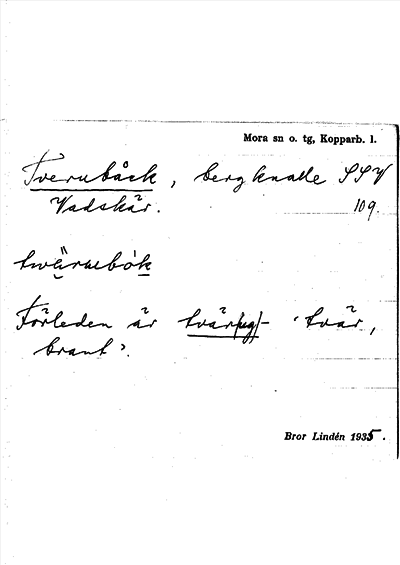 Mora sn o. tg, Kopparb. l.
Tvernbåck, bergknalle SSV
Vadskär. 109.
Förleden är tvär(ug)- 'tvär,
brant'.
Bror Lindén 1935.